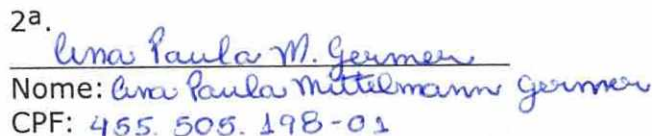 2ª.
Ana Paula M. Germer
Nome: Ana Paula Mittelmann Germer
CPF: 455.505.198-01